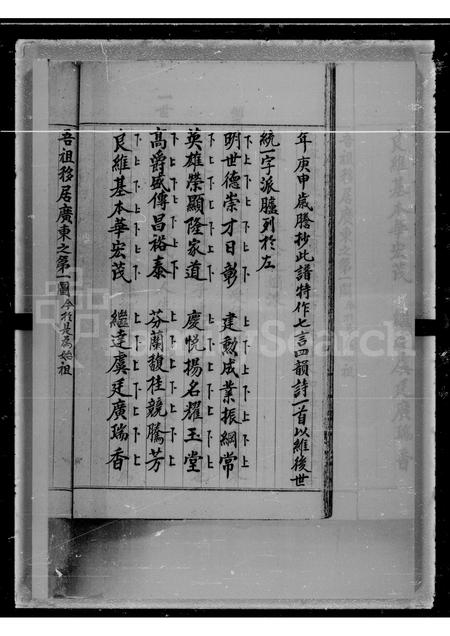 年庚申歲謄抄此譜特作七言四韻詩一首以維後世
統一字派臚列於左
明世德崇才日彰 建勲成業振綱常
下上下上下上下 上下上下上下上
英雄榮顯隆家道 慶悦揚名耀玉堂
高爵盛傳昌裕泰 芬蘭馥桂競騰芳
良維基本華宏茂 繼達虞廷廣瑞香
吾祖移居廣東之第一圖今於是為始祖
FamilySearch